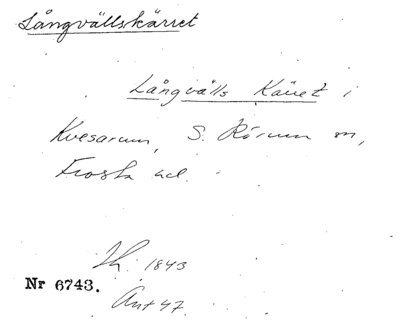 Långvällskärret
Långvälls Käret i
Kvesarum, S. Rörum sn,
Frosta hd.
Sk. 1843
Nr 6743.
Ant 47.